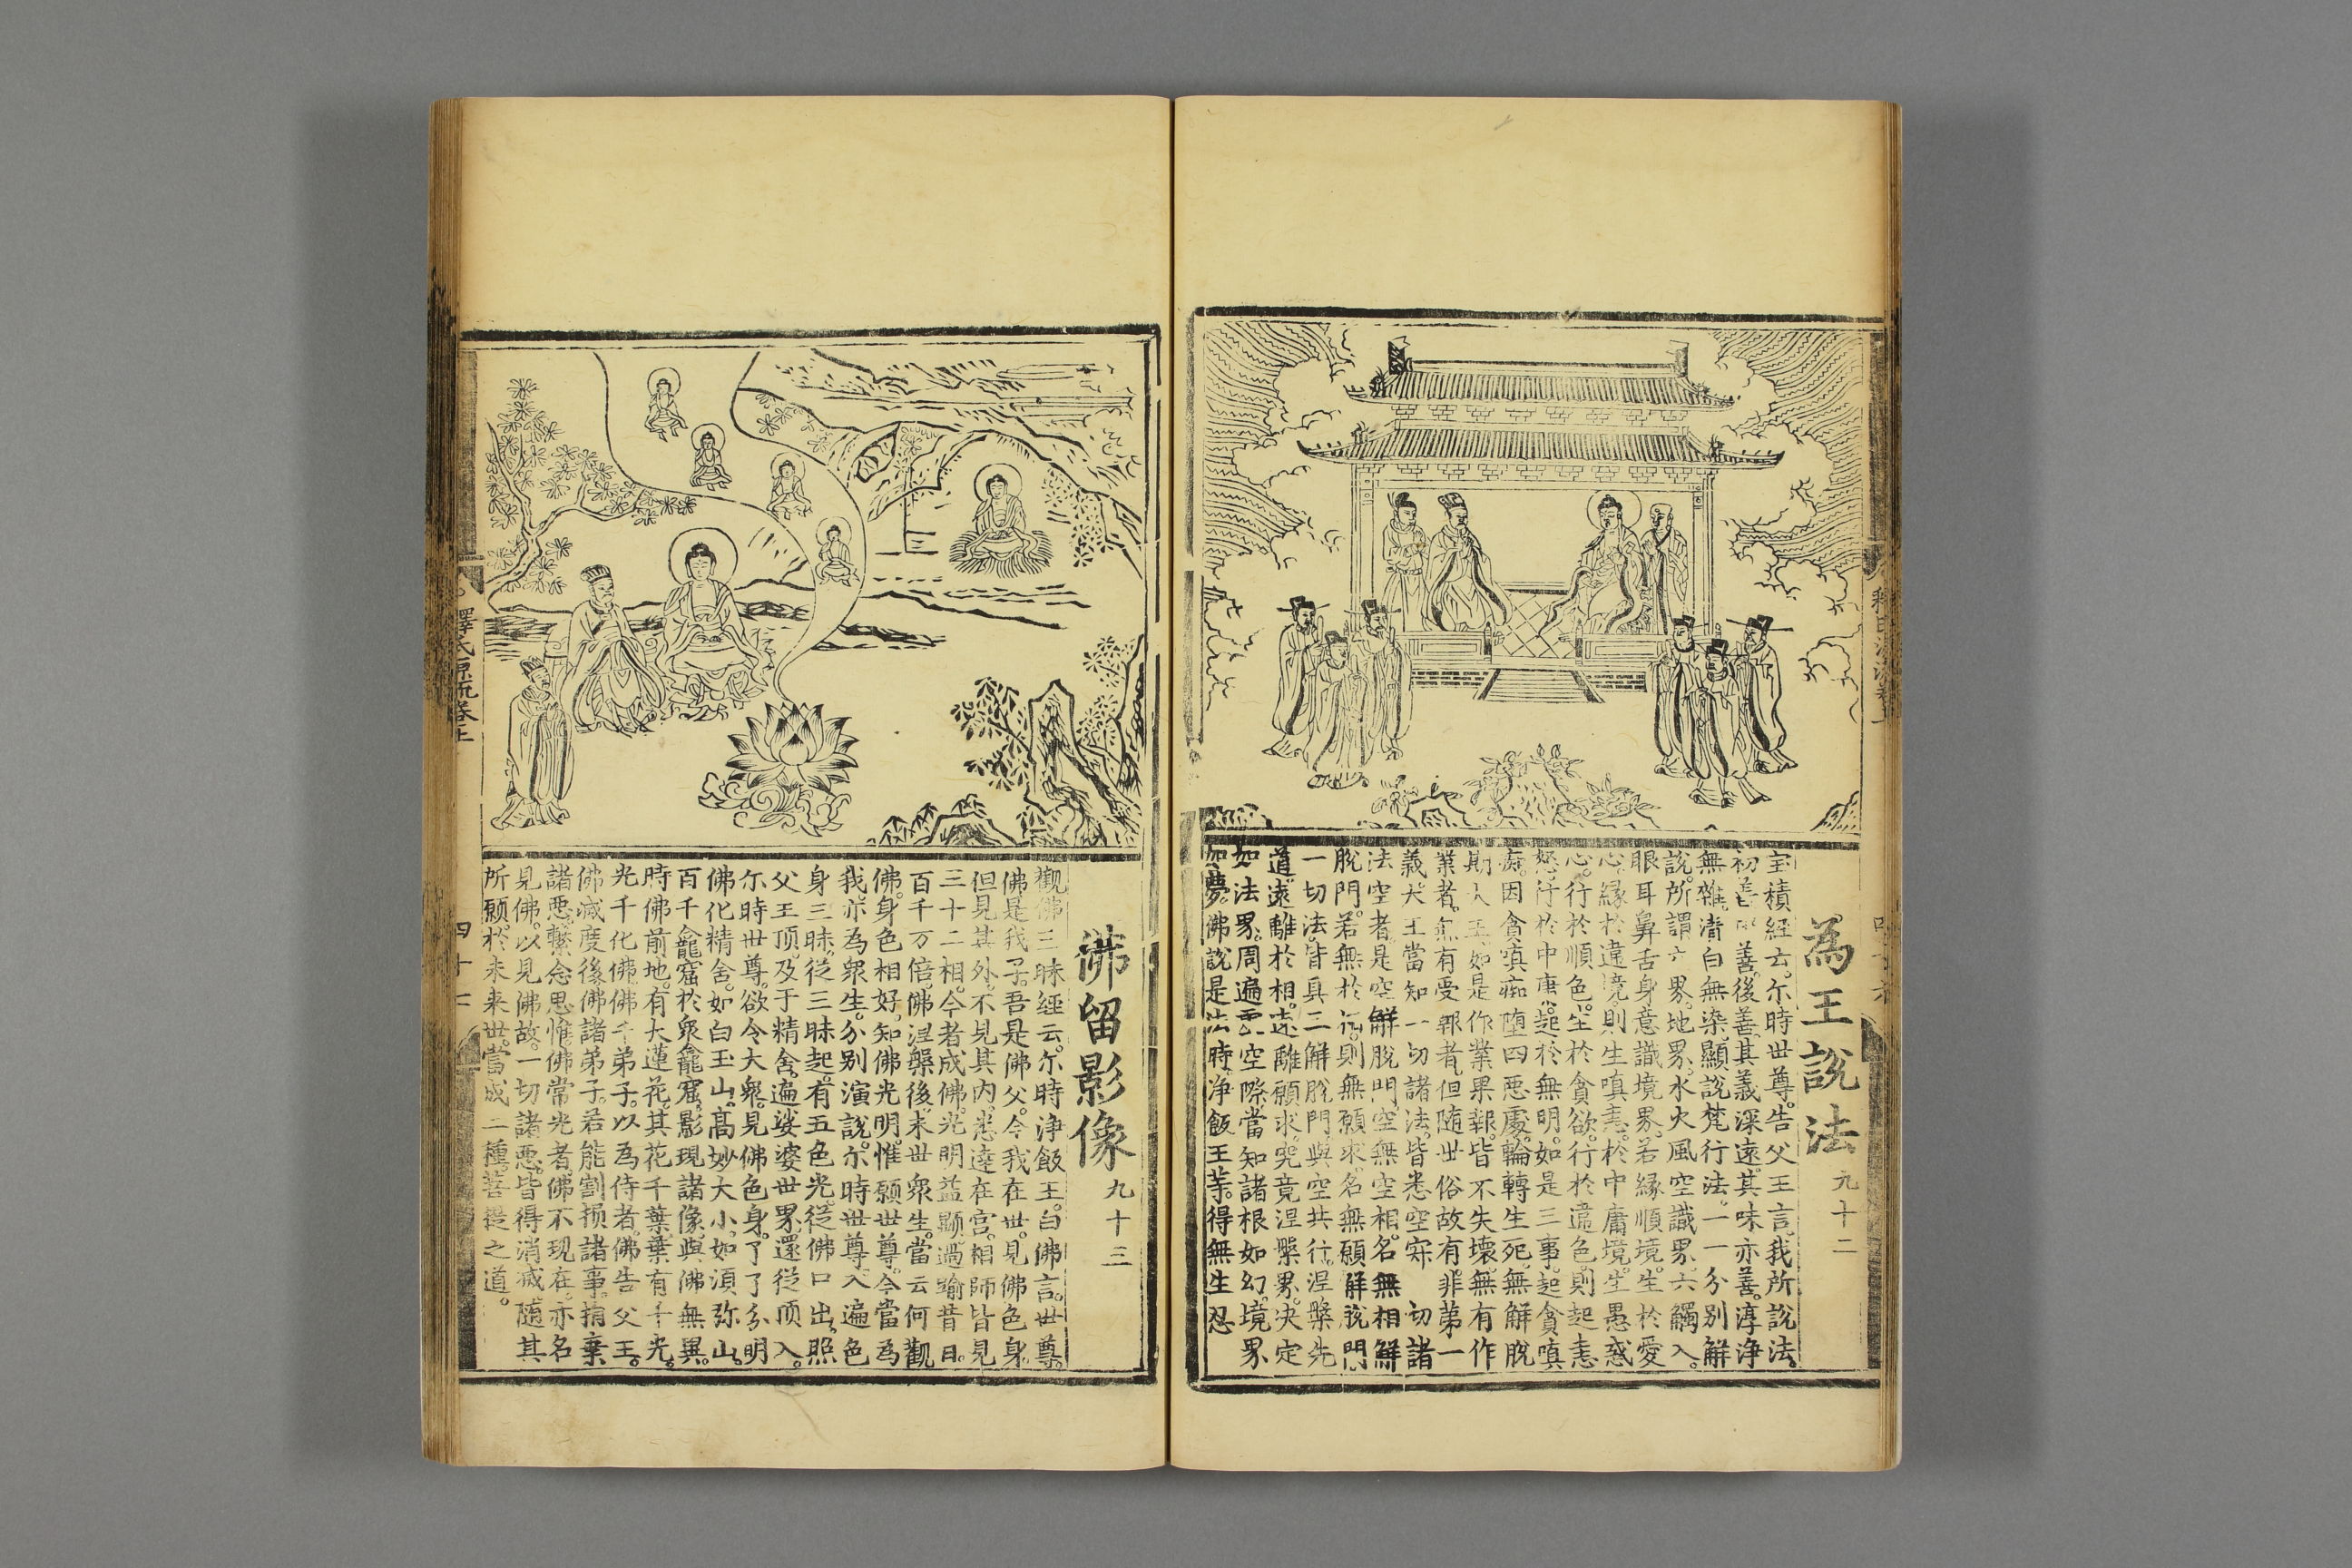 為王說法 九十二
宝積経云。尒時世尊。告父王言。我所說法。
初善中善。後善。其義深遠。其味亦善。淳浄
無雜。清白無染。顯說梵行法。一一分別解
說。所謂六界。地界。水火風空識界。六觸入。
眼耳鼻舌身意識境界。若縁順境。生於愛
心。縁於違境。則生嗔恚。於中庸境。生愚惑
心。行於順色。生於貪欲。行於違色。則起恚
怒。行於中庸。起於無明。如是三事。起貪嗔
痴。因貪嗔痴。堕四悪處。輪轉生死。無解脫
期。大王。如是作業果報。皆不失壊。無有作
業者。無有受報者。但随世俗故有。非第一
義。大王當知。一切諸法。皆悉空寂。一切諸
法空者。是空解脫門。空無空相。名無相解
脫門。若無於相。則無願求。名無願解脫門。
一切法。皆具三解脫門。與空共行。涅槃先
道。遠離於相。遠離願求。究竟涅槃界。决定
如法界。周遍虛空際。當知諸根如幻。境界
如夢。佛說是法時。浄飯王等。得無生忍
佛留影像 九十三
觀佛三昧経云。尒時浄飯王。白佛言。世尊。
佛是我子。吾是佛父。今我在世。見佛色身。
但見其外。不見其内。悉達在宫。相師皆見
三十二相。今者成佛。光明益顯。過踰昔日。
百千万倍。佛涅槃後。末世衆生。當云何觀
佛。身色相好。知佛光明。惟願世尊。今當為
我。亦為衆生。分别演說。尒時世尊。入遍色
身三昧。従三昧起。有五色光。従佛口出。照
父王頂。及于精舍。遍娑婆世界。還従頂入。
尒時世尊。欲令大衆。見佛色身。了了分明
佛化精舍。如白玉山。髙妙大小。如須弥山。
百千龕窟。於衆龕窟。影現諸像。與佛無異。
時佛前地。有大蓮花。其花千葉。葉有千光。
光千化佛。佛千弟子。以為侍者。佛告父王。
佛滅度後。佛諸弟子。若能割损諸事。捐棄
諸悪。繫念思惟。佛常光者。佛不現在。亦名
見佛。以見佛故。一切諸悪。皆得消滅。随其
所願。於未来世。當成三種菩提之道。
釋氏源流卷上